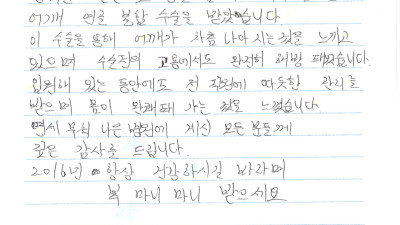 어깨 연골 봉합 수술을 받았습니다.
이 수술을 통해 어깨가 차츰 나아지는 것을 느끼고
있으며 수술전의 고통에서도 완전히 해방 됐습니다.
입원해 있는 동안에도 전 직원에 따뜻한 관리를
받으며 몸이 완쾌돼 가는 것을 느꼈습니다
나은 병원에 계신 모든 분들께
깊은 감사를 드립니다.
2016년 항상 건강하시길 바라며
복 마니 마니 받으세요